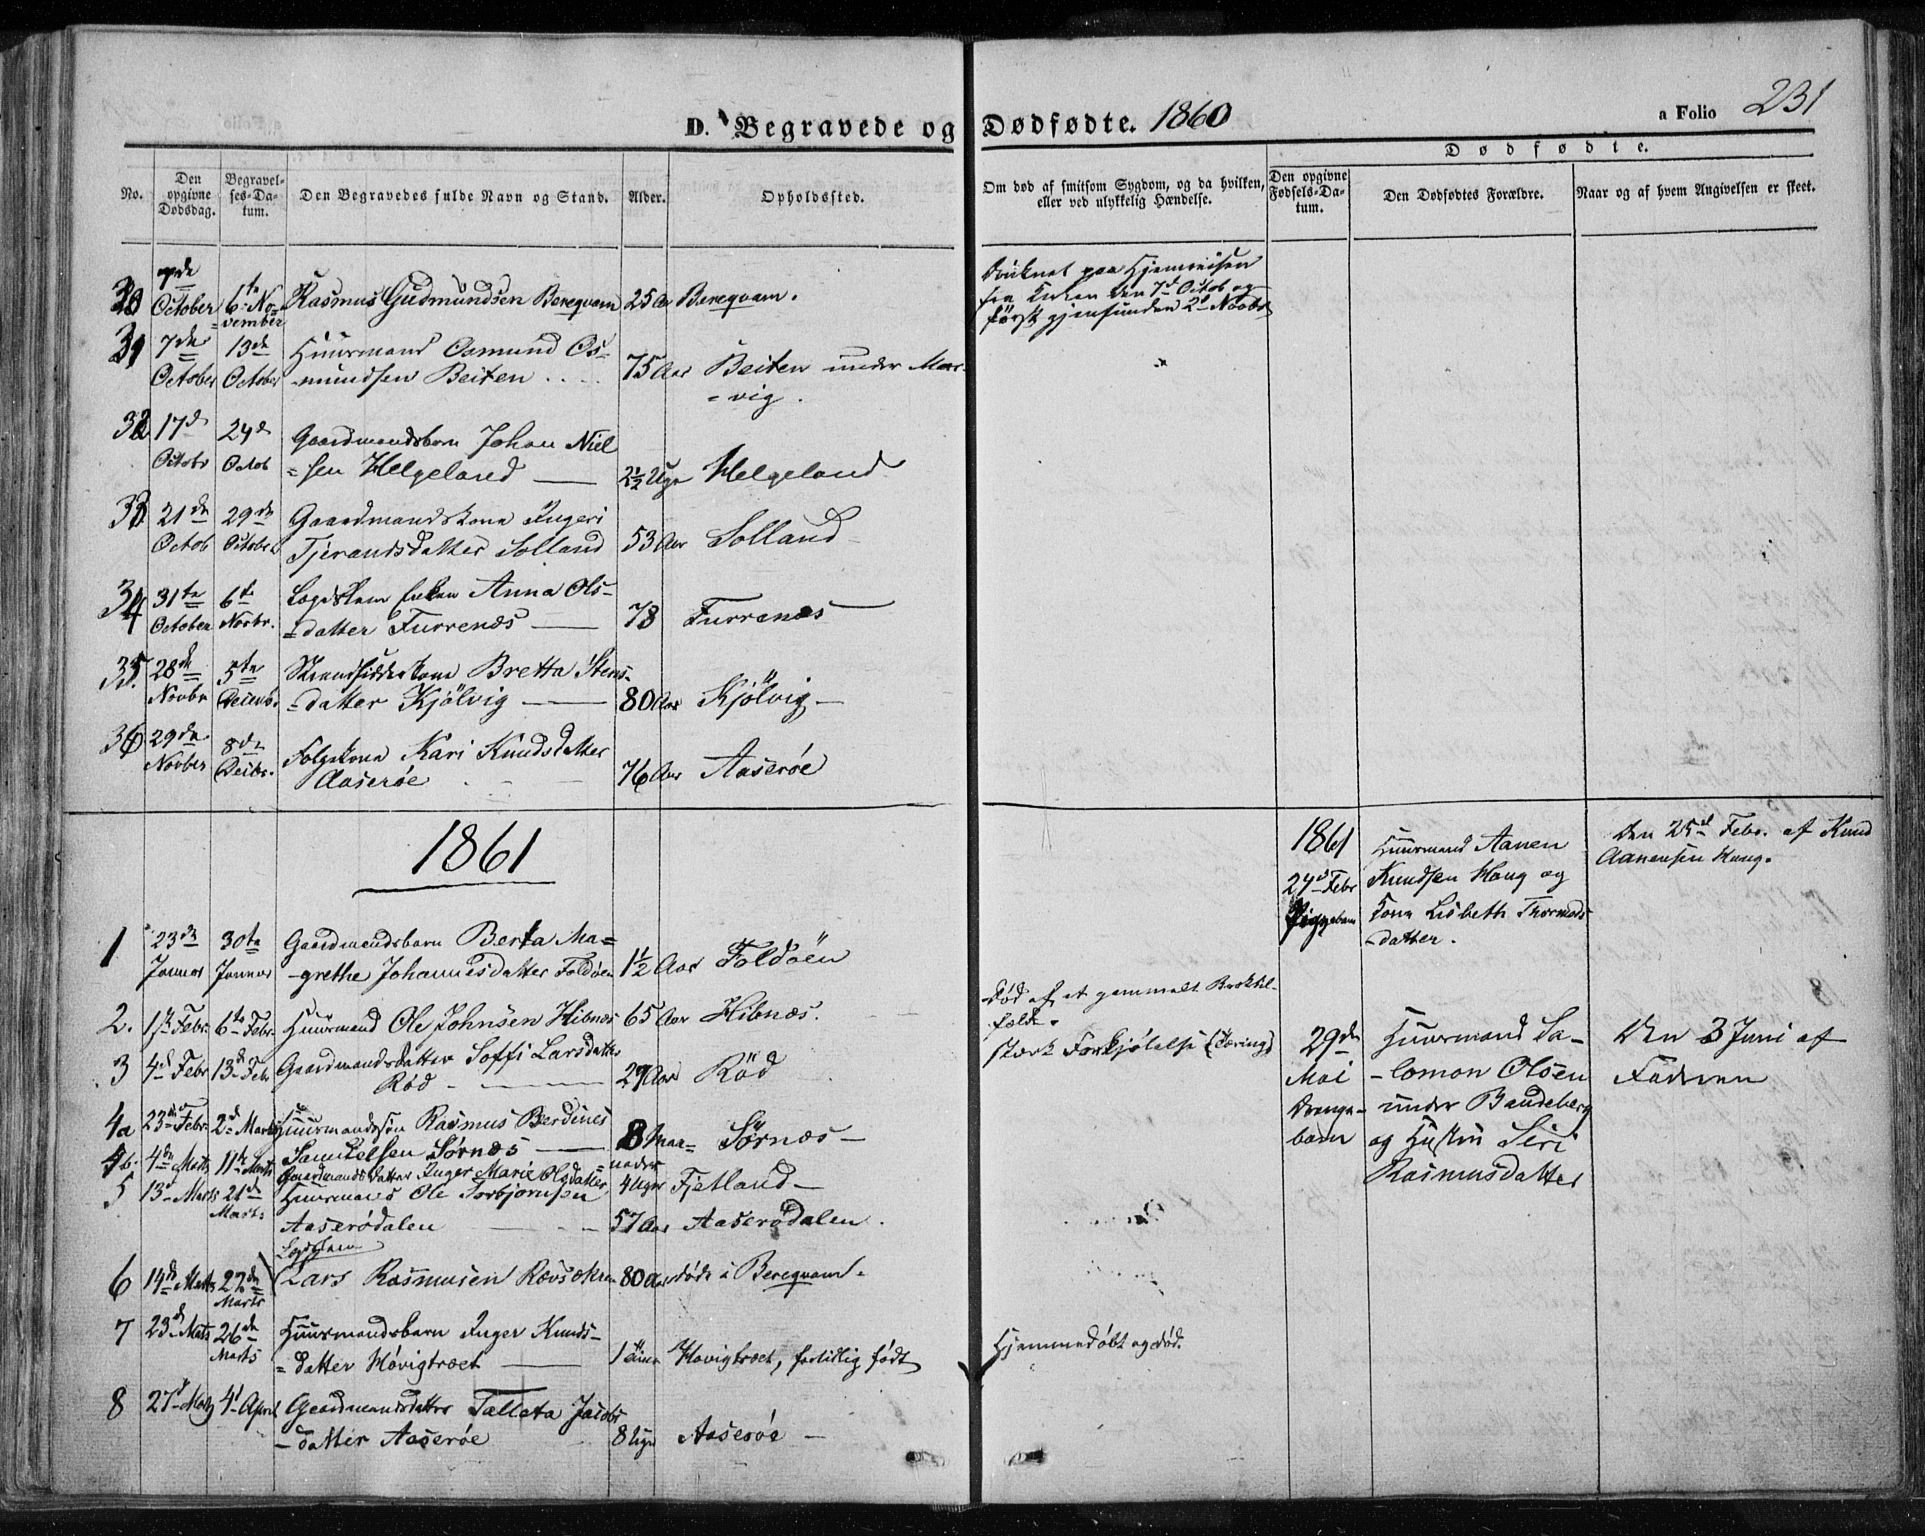 D. Begravede og Dødfødte. 1860
a Folio 231
No.
Den opgivne Dødsdag.
Begravelses-Datum.
Den Begravedes fulde Navn og Stand.
Alder.
Opholdssted.
Om død af smitsom Sygdom, og da hvilken,
eller ved ulykkelig Hændelse.
Dødfødte.
Den opgivne Fødsels-Datum.
Den Dødfødtes Forældre.
Naar og af hvem Angivelsen er skeet.
30 7de October 6te November Rasmus Gudmundsen Bereqvam 25 Aar Bereqvam.
Druknet paa Hjemreisen
fra Kirken den 7de Octob og
først gjenfunden 2den Novbr
31 7de October 13de October Huusmand Osmund Os-
mundsen Beiten 75 Aar Beiten under Mar-
vig.
32 17d Octobr 24d Octob Gaardmandsbarn Johan Niel
=sen Helgeland 2½ Uge Helgeland
33 21de Octob 29de Octobr. Gaardmandskone Ingeri
Tjerandsdatter Solland 53 Aar Solland
34 31te October 6te Novbr. Lægdslem Anna Ols-
=datter Furrenæs 78 Furrenæs
35. 28de Novbr 5te Decembr. Strandsidderkone Bretta Stens-
=datter Kjölvig 80 Aar Kjölvig
36 29de Novber 8de Decbr. Folgekone Kari Knudsdatter
Aaserøe 76 Aar Aaserøe
1861
1861
24d Febr
Pigebarn
Huusmand Aanen
Knudsen Haug og
Kone Lisbeth Thormods-
datter.
Den 25d Febr. af Knud
Aanensen Haug.
1 23de Januar 30te Januar Gaardmandsbarn Berta Ma=
-grethe Johannesdatter Foldøen 1½ Aar Foldöen
2. 1ste Febr. 6te Febr. Huusmand Ole Johnsen Hibnæs 65 Aar Hibnæs.
Død af et gammelt Broktil-
fælde.
3 4d Febr 13de Feb. Gaardmandsdatter Soffi Larsdatter
Röd 29 Aar Röd
Stærk Forkjölelse (Tæring)
29de
Mai
Drenge-
barn
Huusmand Sa-
-lomon Olsen
under Bandeberg
og Hustru Seri
Rasmusdatter
Den 3 Juni af
Faderen
4a 23de Febr. 2d Marts Huusmandssøn Rasmus Berdines
Samuelsen Sørnæs 8 Maaneder Sørnæs
4b. 4de Marts 11te Marts Gaardmandsdatter Inger Marie Olsdatter 4 Uger Fjetland
5 13d Marts 21de Marts Huusmand Ole Torbjørnsen
Aaserödalen 57 Aar Aaserödalen.
Lægdslem
6 14de Marts 27de Marts Lars Rasmusen Rævsekre 80 Aar døde i Bereqvam.
7 23d Marts 26de Marts Huusmandsbarn Inger Knuds-
=datter Hövigtræet Hovigtræet, fortidlig født
Hjemmedöbt og død.
8 27d Marts 4d April Gaardmandsdatter Talleta Jacobs
-datter Aaserøe 8 Uger Aaserøe